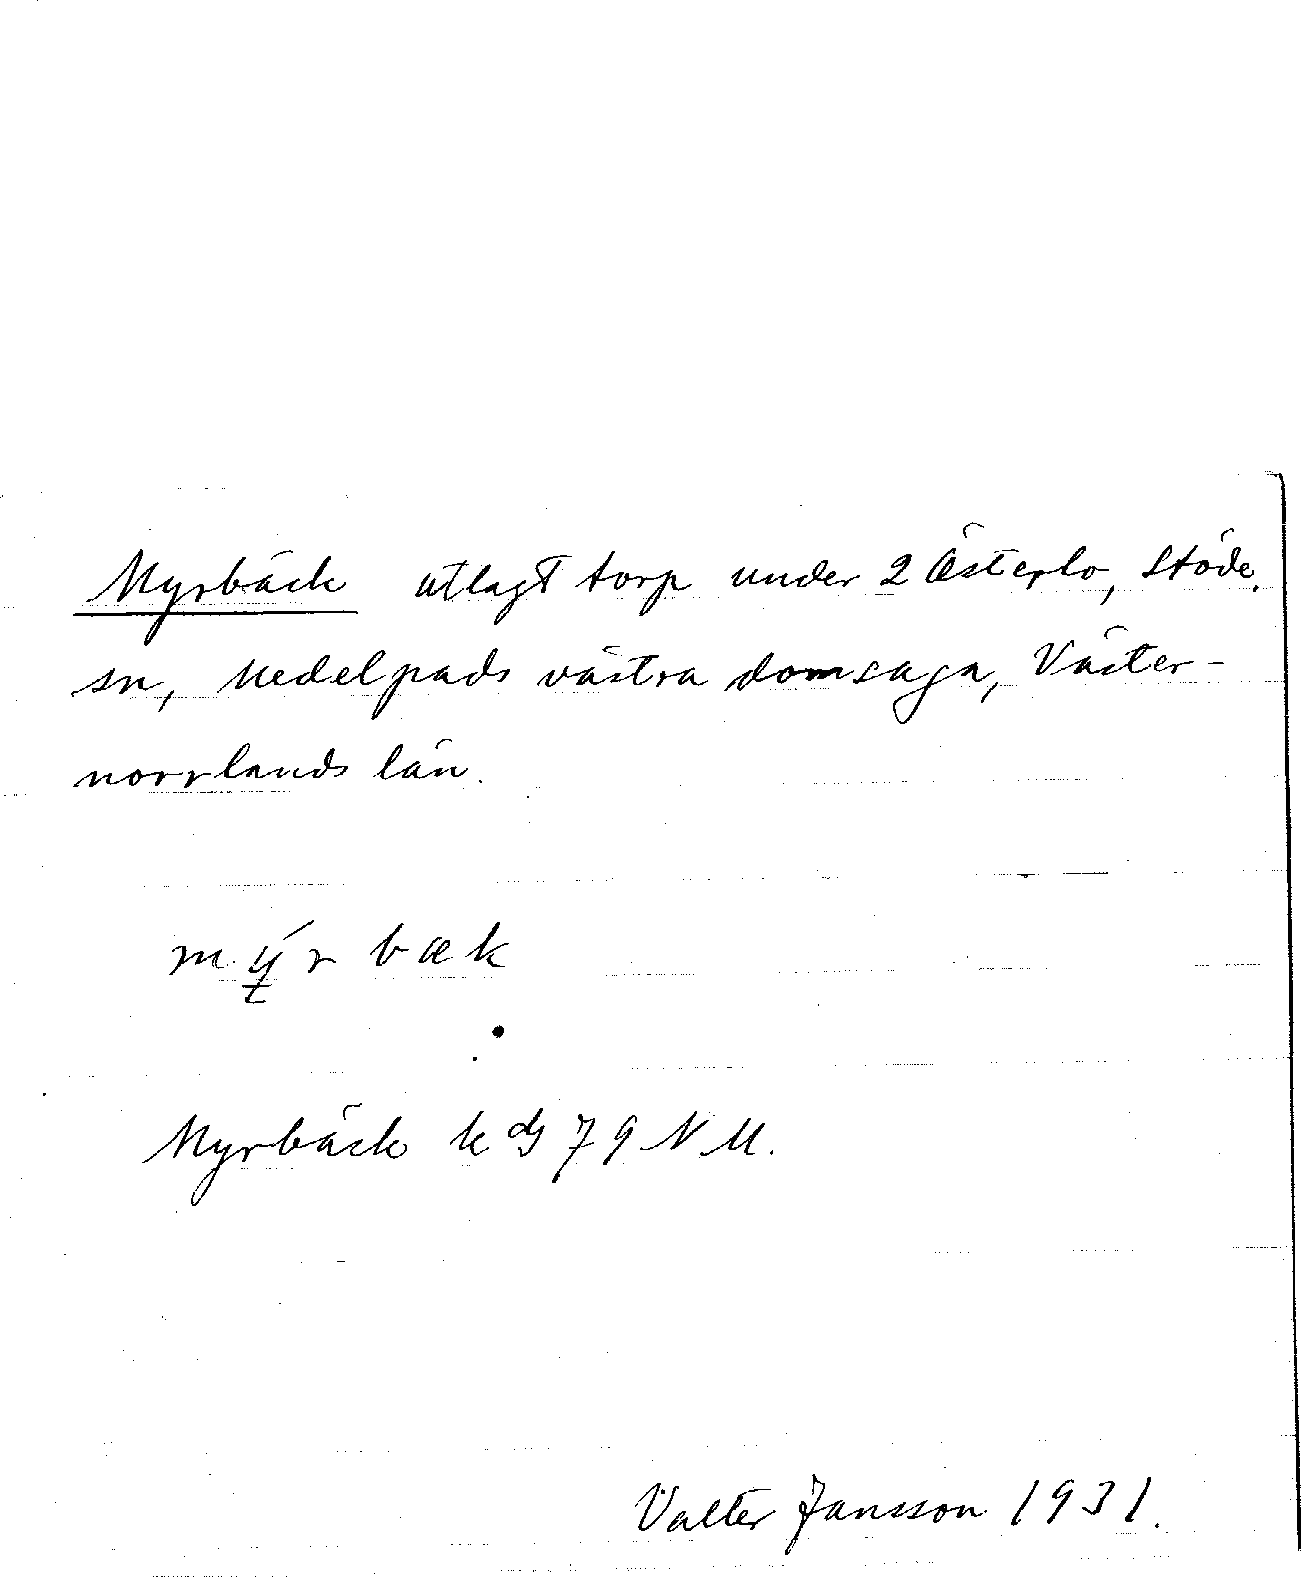 Myrbäck utlagt torp under 2 Österlo, Stöde
sn, Medelpads västra domsaga, Väster-
norrlands län.
mýr bæk
Myrbäck k dj 79 NM.
Valter Jansson 1931.